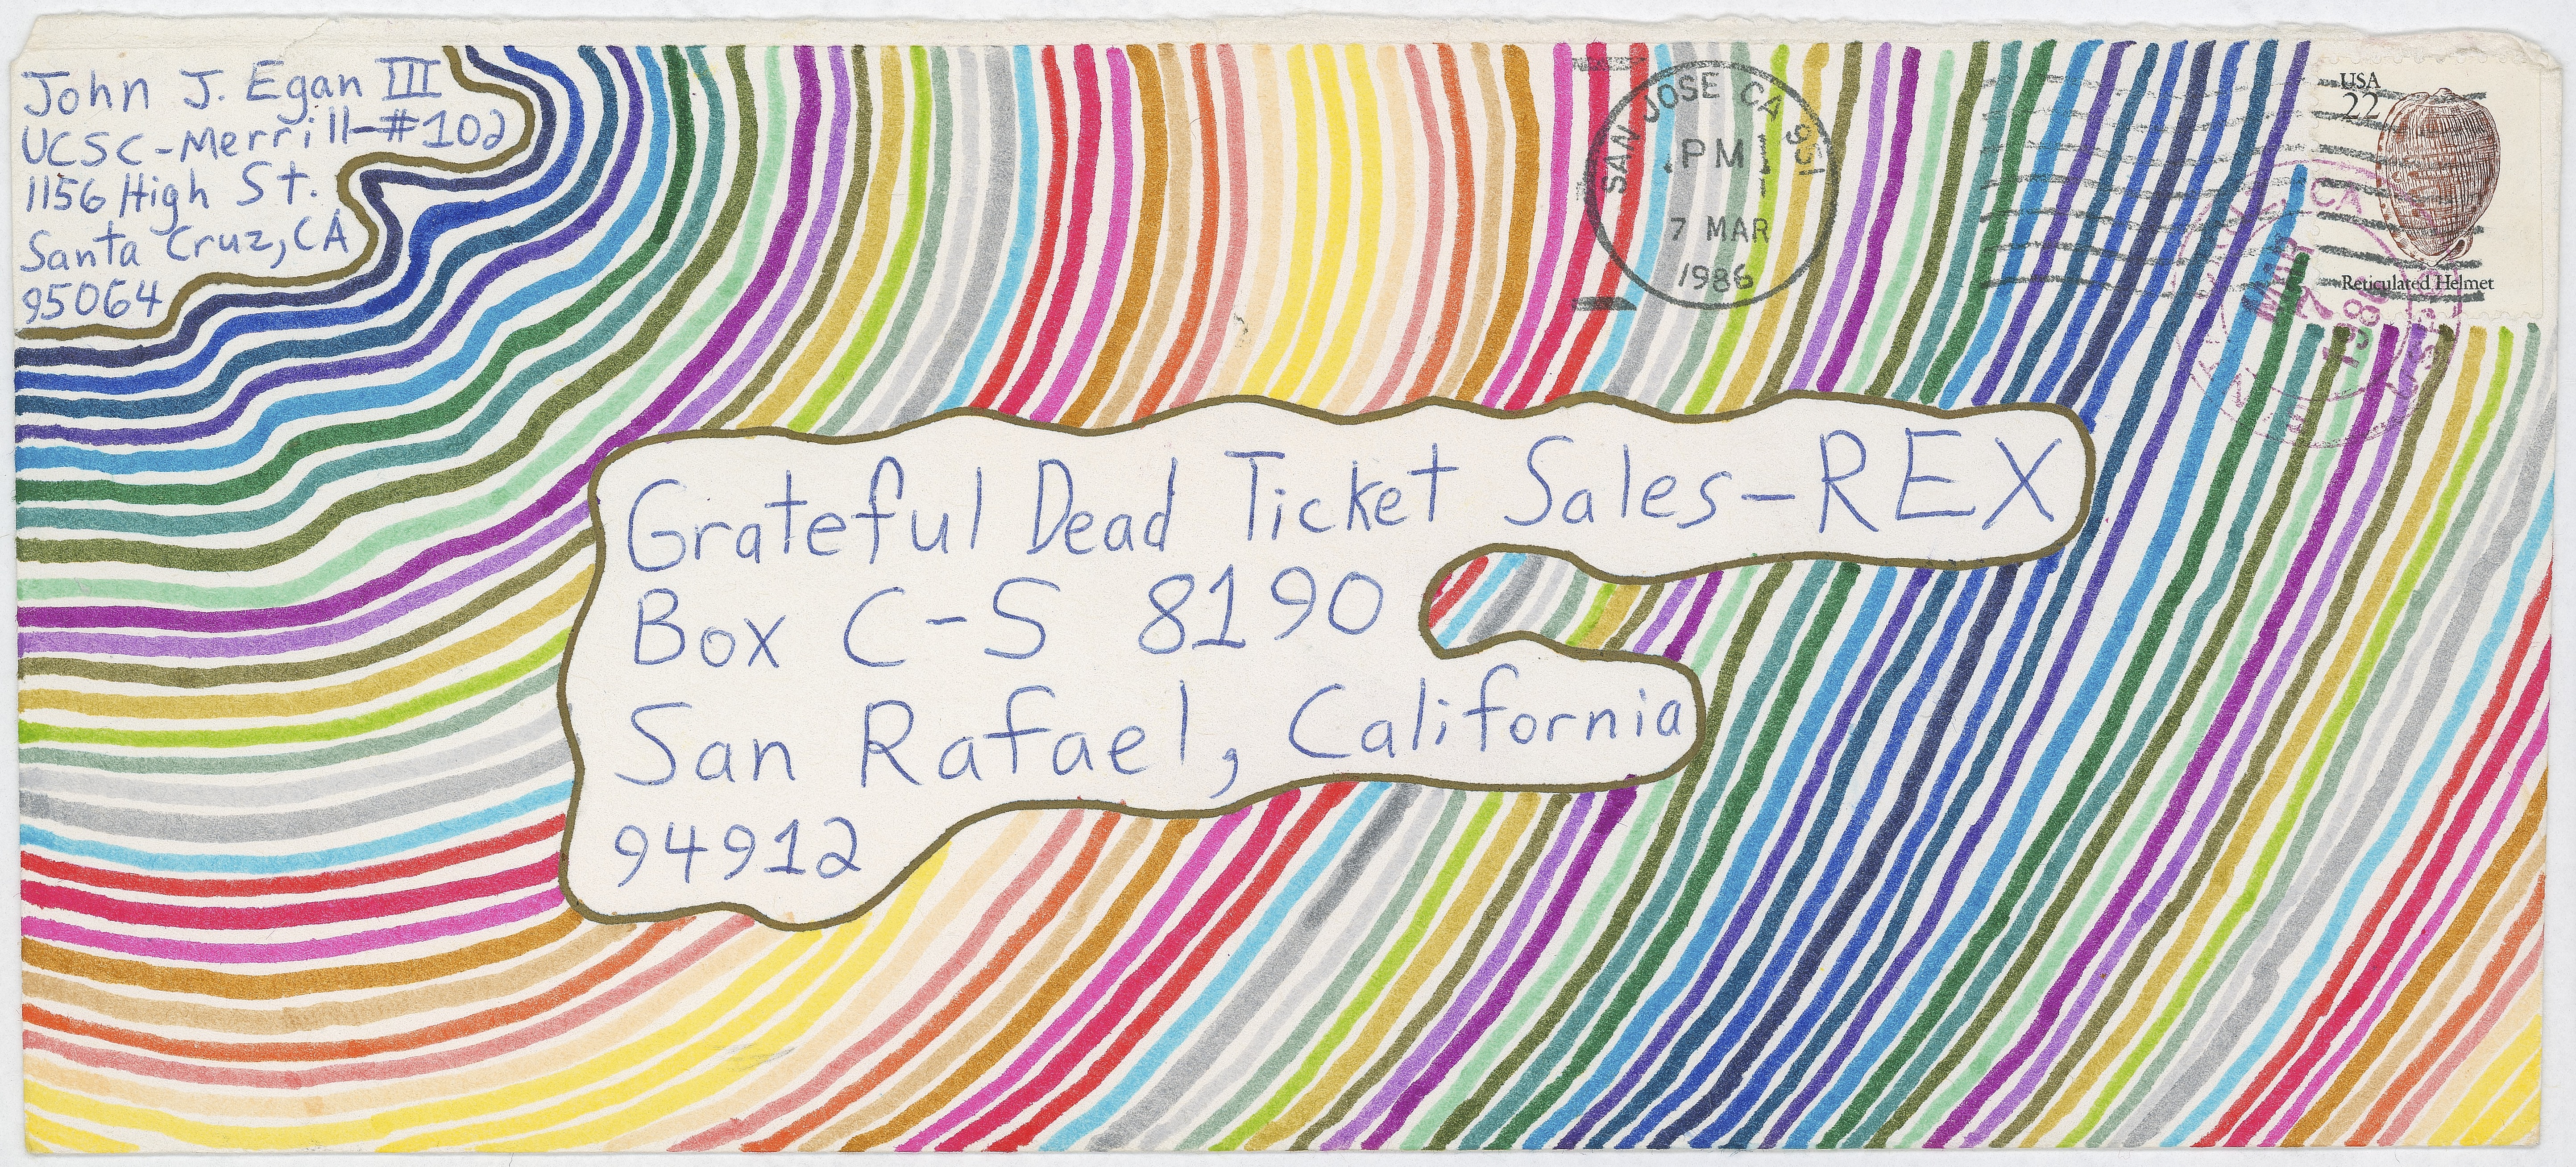 John J. Egan III
UCSC-Merrill-#102
1156 High St.
Santa Cruz, CA
95064
SAN JOSE CA 951
PM
7 MAR
1986
USA
22
Reticulated Helmet
CA
MAR
7
1986
Grateful Dead Ticket Sales-REX
Box C-S 8190
San Rafael, California
94912